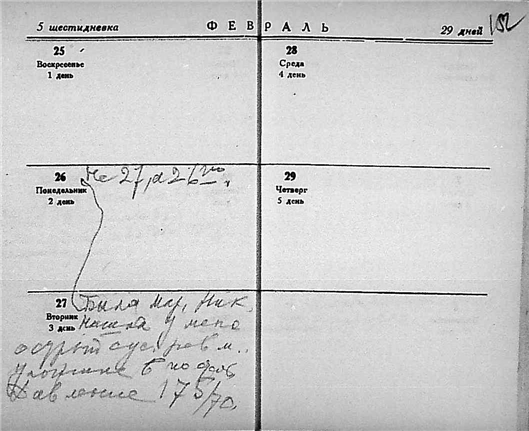 5 шестидневка
ФЕВРАЛЬ
29 дней
152
25
Воскресенье
1 день
26
Понедельник
2 день
Не 27, а 26го.
27
Вторник
3 день
Была Мар. Ник.
Нашла у меня
острый суст. ревм.
6
Давление 175/70
28
Среда
4 день
29
Четверг
5 день